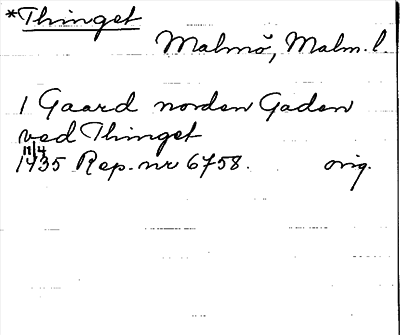 *Thinget
Malmö, Malm. l.
1 Gaard norden Gaden
ved Thinget
11/4
1435 Rep. nr 6758. orig.